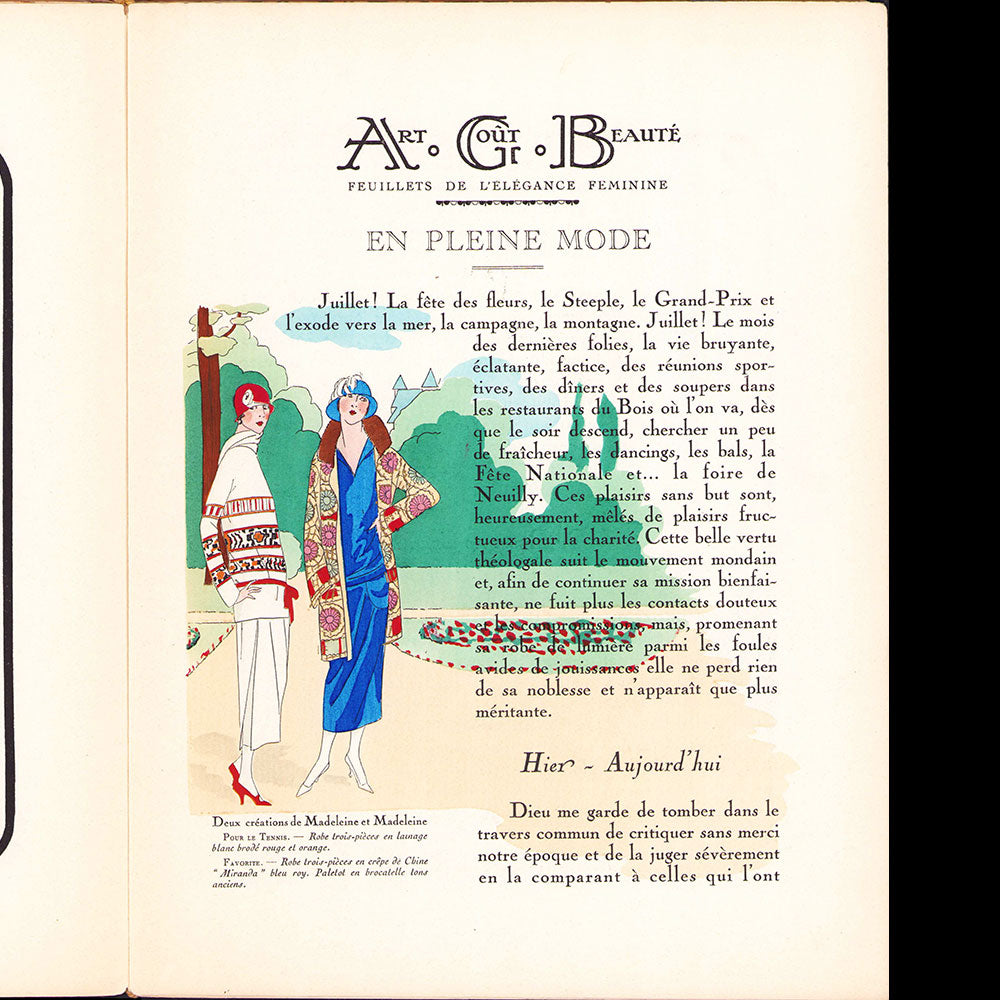 ART · GOÛT · BEAUTÉ
FEUILLETS DE L'ÉLÉGANCE FEMININE
EN PLEINE MODE
Juillet! La fête des fleurs, le Steeple, le Grand-Prix et
l'exode vers la mer, la campagne, la montagne. Juillet! Le mois
des dernières folies, la vie bruyante,
éclatante, factice, des réunions spor-
tives, des dîners et des soupers dans
les restaurants du Bois où l'on va, dès
que le soir descend, chercher un peu
de fraîcheur, les dancings, les bals, la
Fête Nationale et... la foire de
Neuilly. Ces plaisirs sans but sont,
heureusement, mêlés de plaisirs fruc-
tueux pour la charité. Cette belle vertu
théologale suit le mouvement mondain
et, afin de continuer sa mission bienfai-
sante, ne fuit plus les contacts douteux
et les compromissions, mais, promenant
sa robe de lumière parmi les foules
avides de jouissances elle ne perd rien
de sa noblesse et n'apparaît que plus
méritante.
Hier - Aujourd'hui
Dieu me garde de tomber dans le
travers commun de critiquer sans merci
notre époque et de la juger sévèrement
en la comparant à celles qui l'ont
Deux créations de Madeleine et Madeleine
POUR LE TENNIS. — Robe trois-pièces en lainage
blanc brodé rouge et orange.
FAVORITE. — Robe trois-pièces en crêpe de Chine
"Miranda" bleu roy. Paletot en brocatelle tons
anciens.